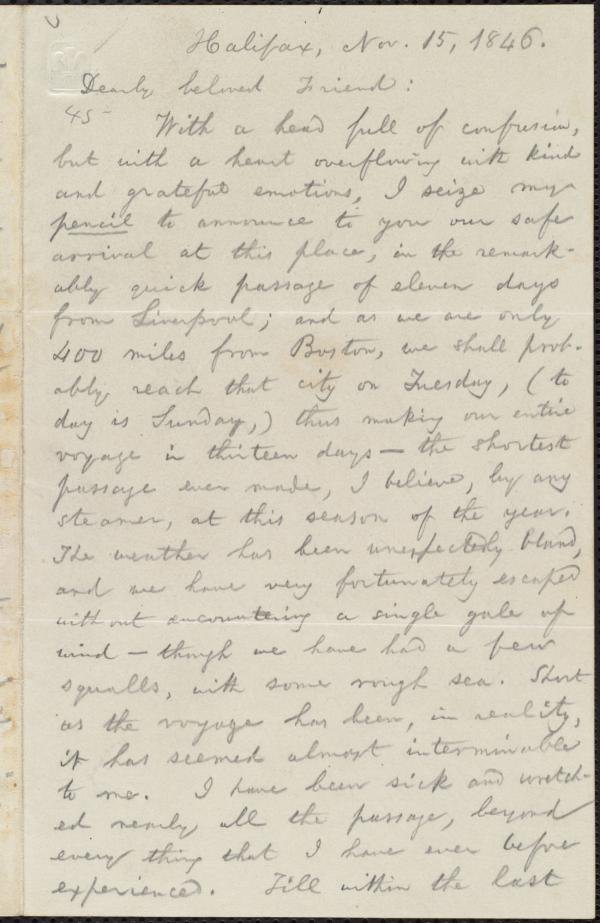 Halifax, Nov. 15, 1846.
Dearly beloved Friend:
45
With a head full of confusion,
but with a heart overflowing with kind
and grateful emotions, I seize my
pencil to announce to you our safe
arrival at this place, in the remark-
ably quick passage of eleven days
from Liverpool; and as we are only
400 miles from Boston, we shall prob-
ably reach that city on Tuesday, (to
day is Sunday,) thus making our entire
voyage in thirteen days — the shortest
passage ever made, I believe, by any
steamer, at this season of the year.
The weather has been unexpectedly bland,
and we have very fortunately escaped
without encountering a single gale of
wind — though we have had a few
squalls, with some rough sea. Short
as the voyage has been, in reality,
it has seemed almost interminable
to me. I have been sick and wretch-
ed nearly all the passage, beyond
every thing that I have ever before
experienced. Till within the last